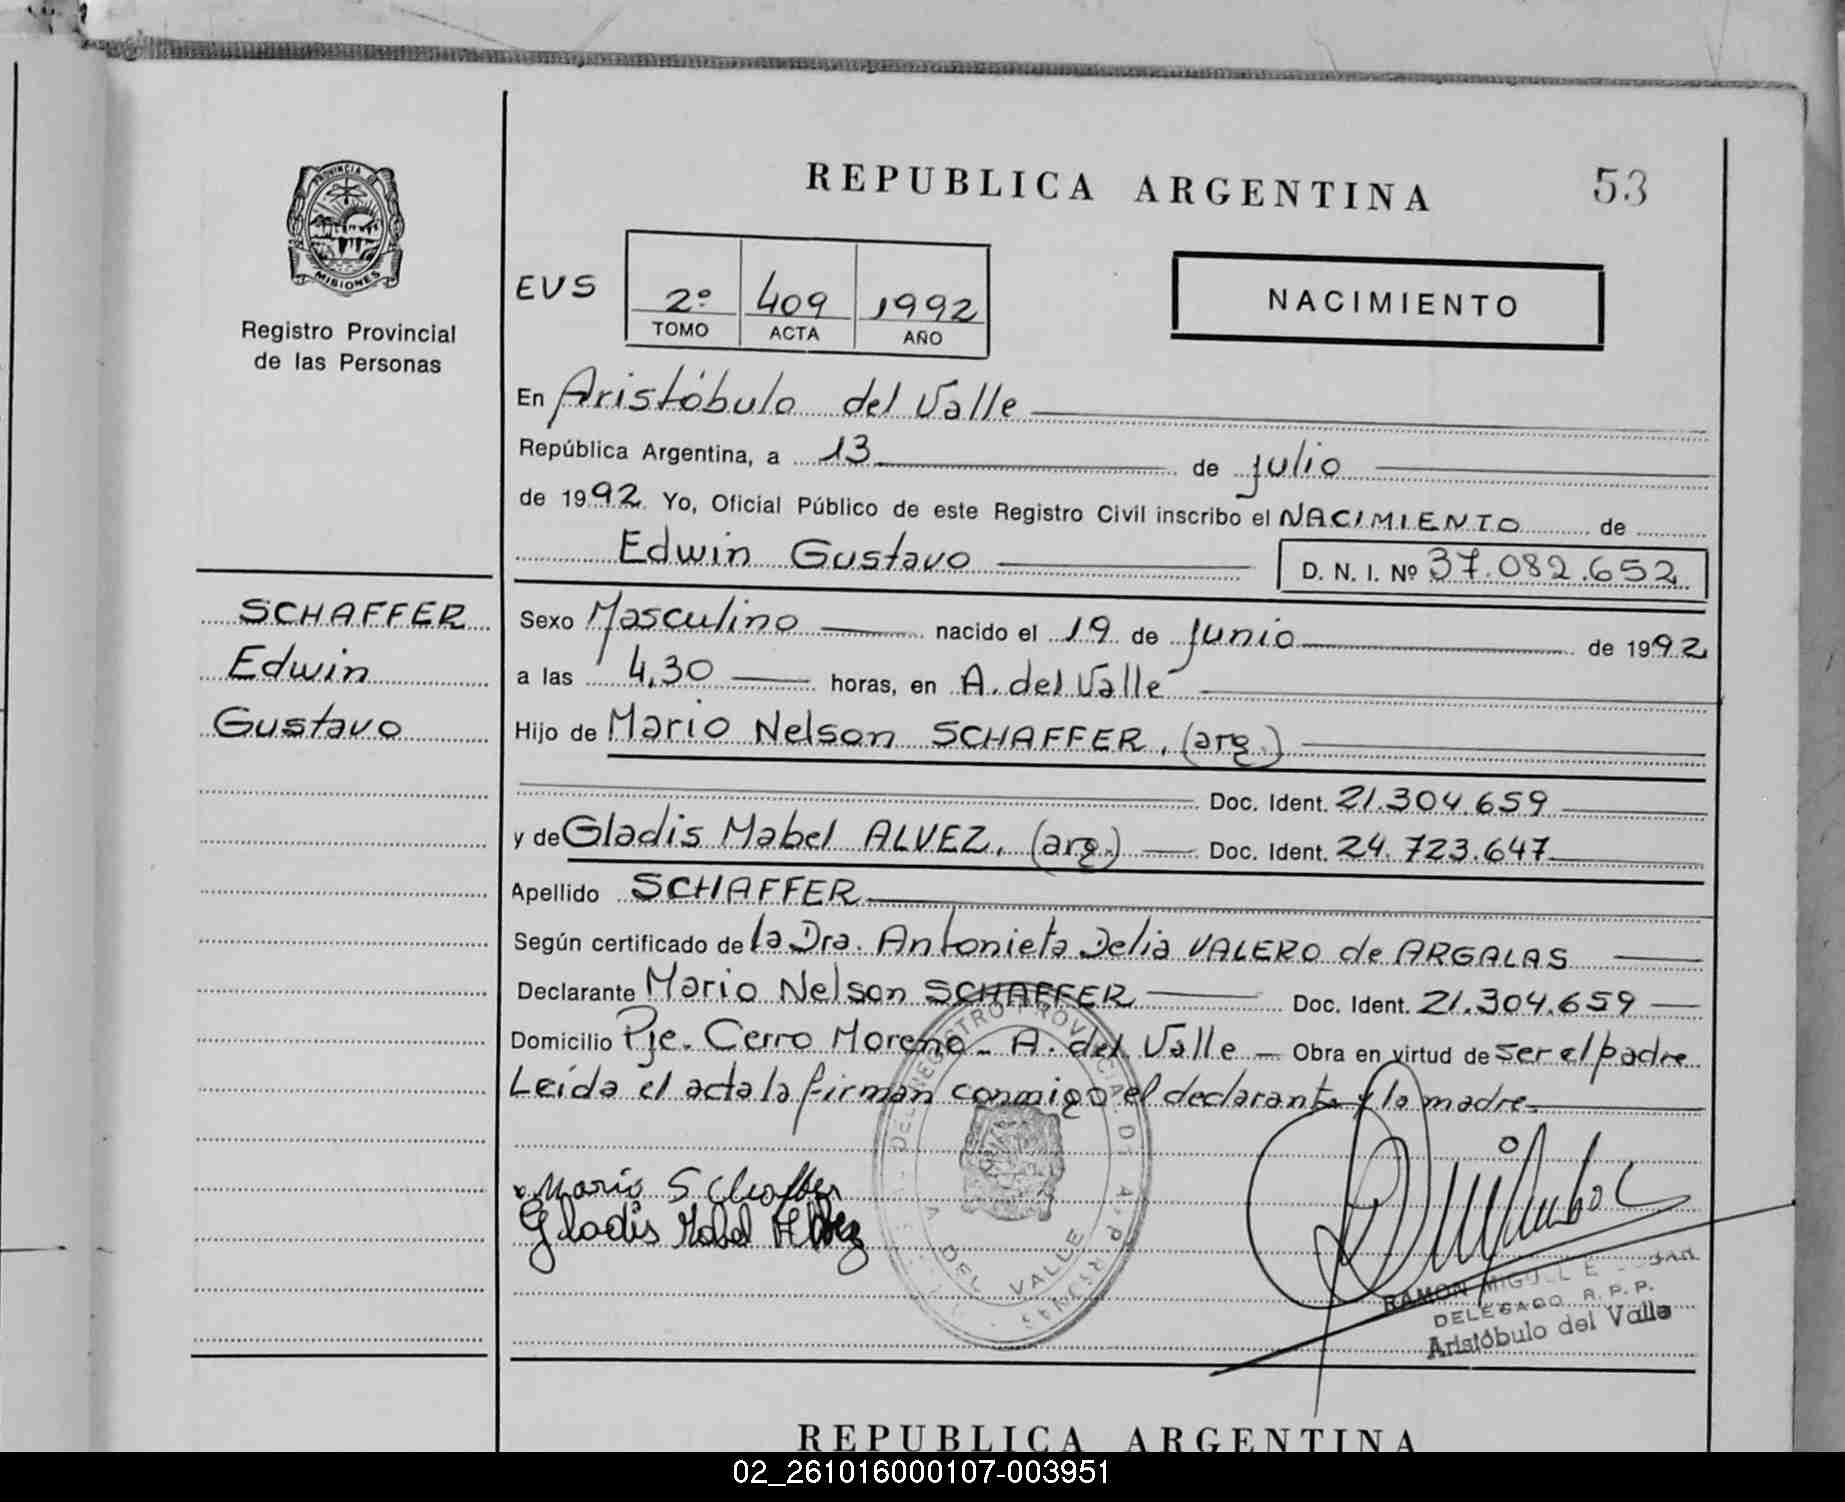 REPUBLICA ARGENTINA
53
PROVINCIA DE
MISIONES
Registro Provincial
de las Personas
EVS
2º 409 1992
TOMO ACTA AÑO
NACIMIENTO
En Aristóbulo del Valle
República Argentina, a 13 de julio
de 1992. Yo, Oficial Público de este Registro Civil inscribo el NACIMIENTO de
Edwin Gustavo
D. N. I. Nº 37.082.652
SCHAFFER
Edwin
Gustavo
Sexo Masculino nacido el 19 de junio de 1992
a las 4,30 horas, en A. del Valle
Hijo de Mario Nelson SCHAFFER, (arg.)
Doc. Ident. 21.304.659
y de Gladis Mabel ALVEZ, (arg.) Doc. Ident. 24.723.647
Apellido SCHAFFER
Según certificado de la Dra. Antonieta Delia VALERO de ARGALAS
Declarante Mario Nelson SCHAFFER Doc. Ident. 21.304.659
Domicilio Pje. Cerro Moreno - A. del Valle - Obra en virtud de ser el padre
Leída el acta la firman conmigo el declarante y la madre.
Mario Schaffer
Gladis Mabel Alvez
DEL REGISTRO PROVINCIAL DE
DEL VALLE
MISIONES
RAMON MIGUEL
DELEGADO R. P. P.
Aristóbulo del Valle
REPUBLICA ARGENTINA
02_261016000107-003951